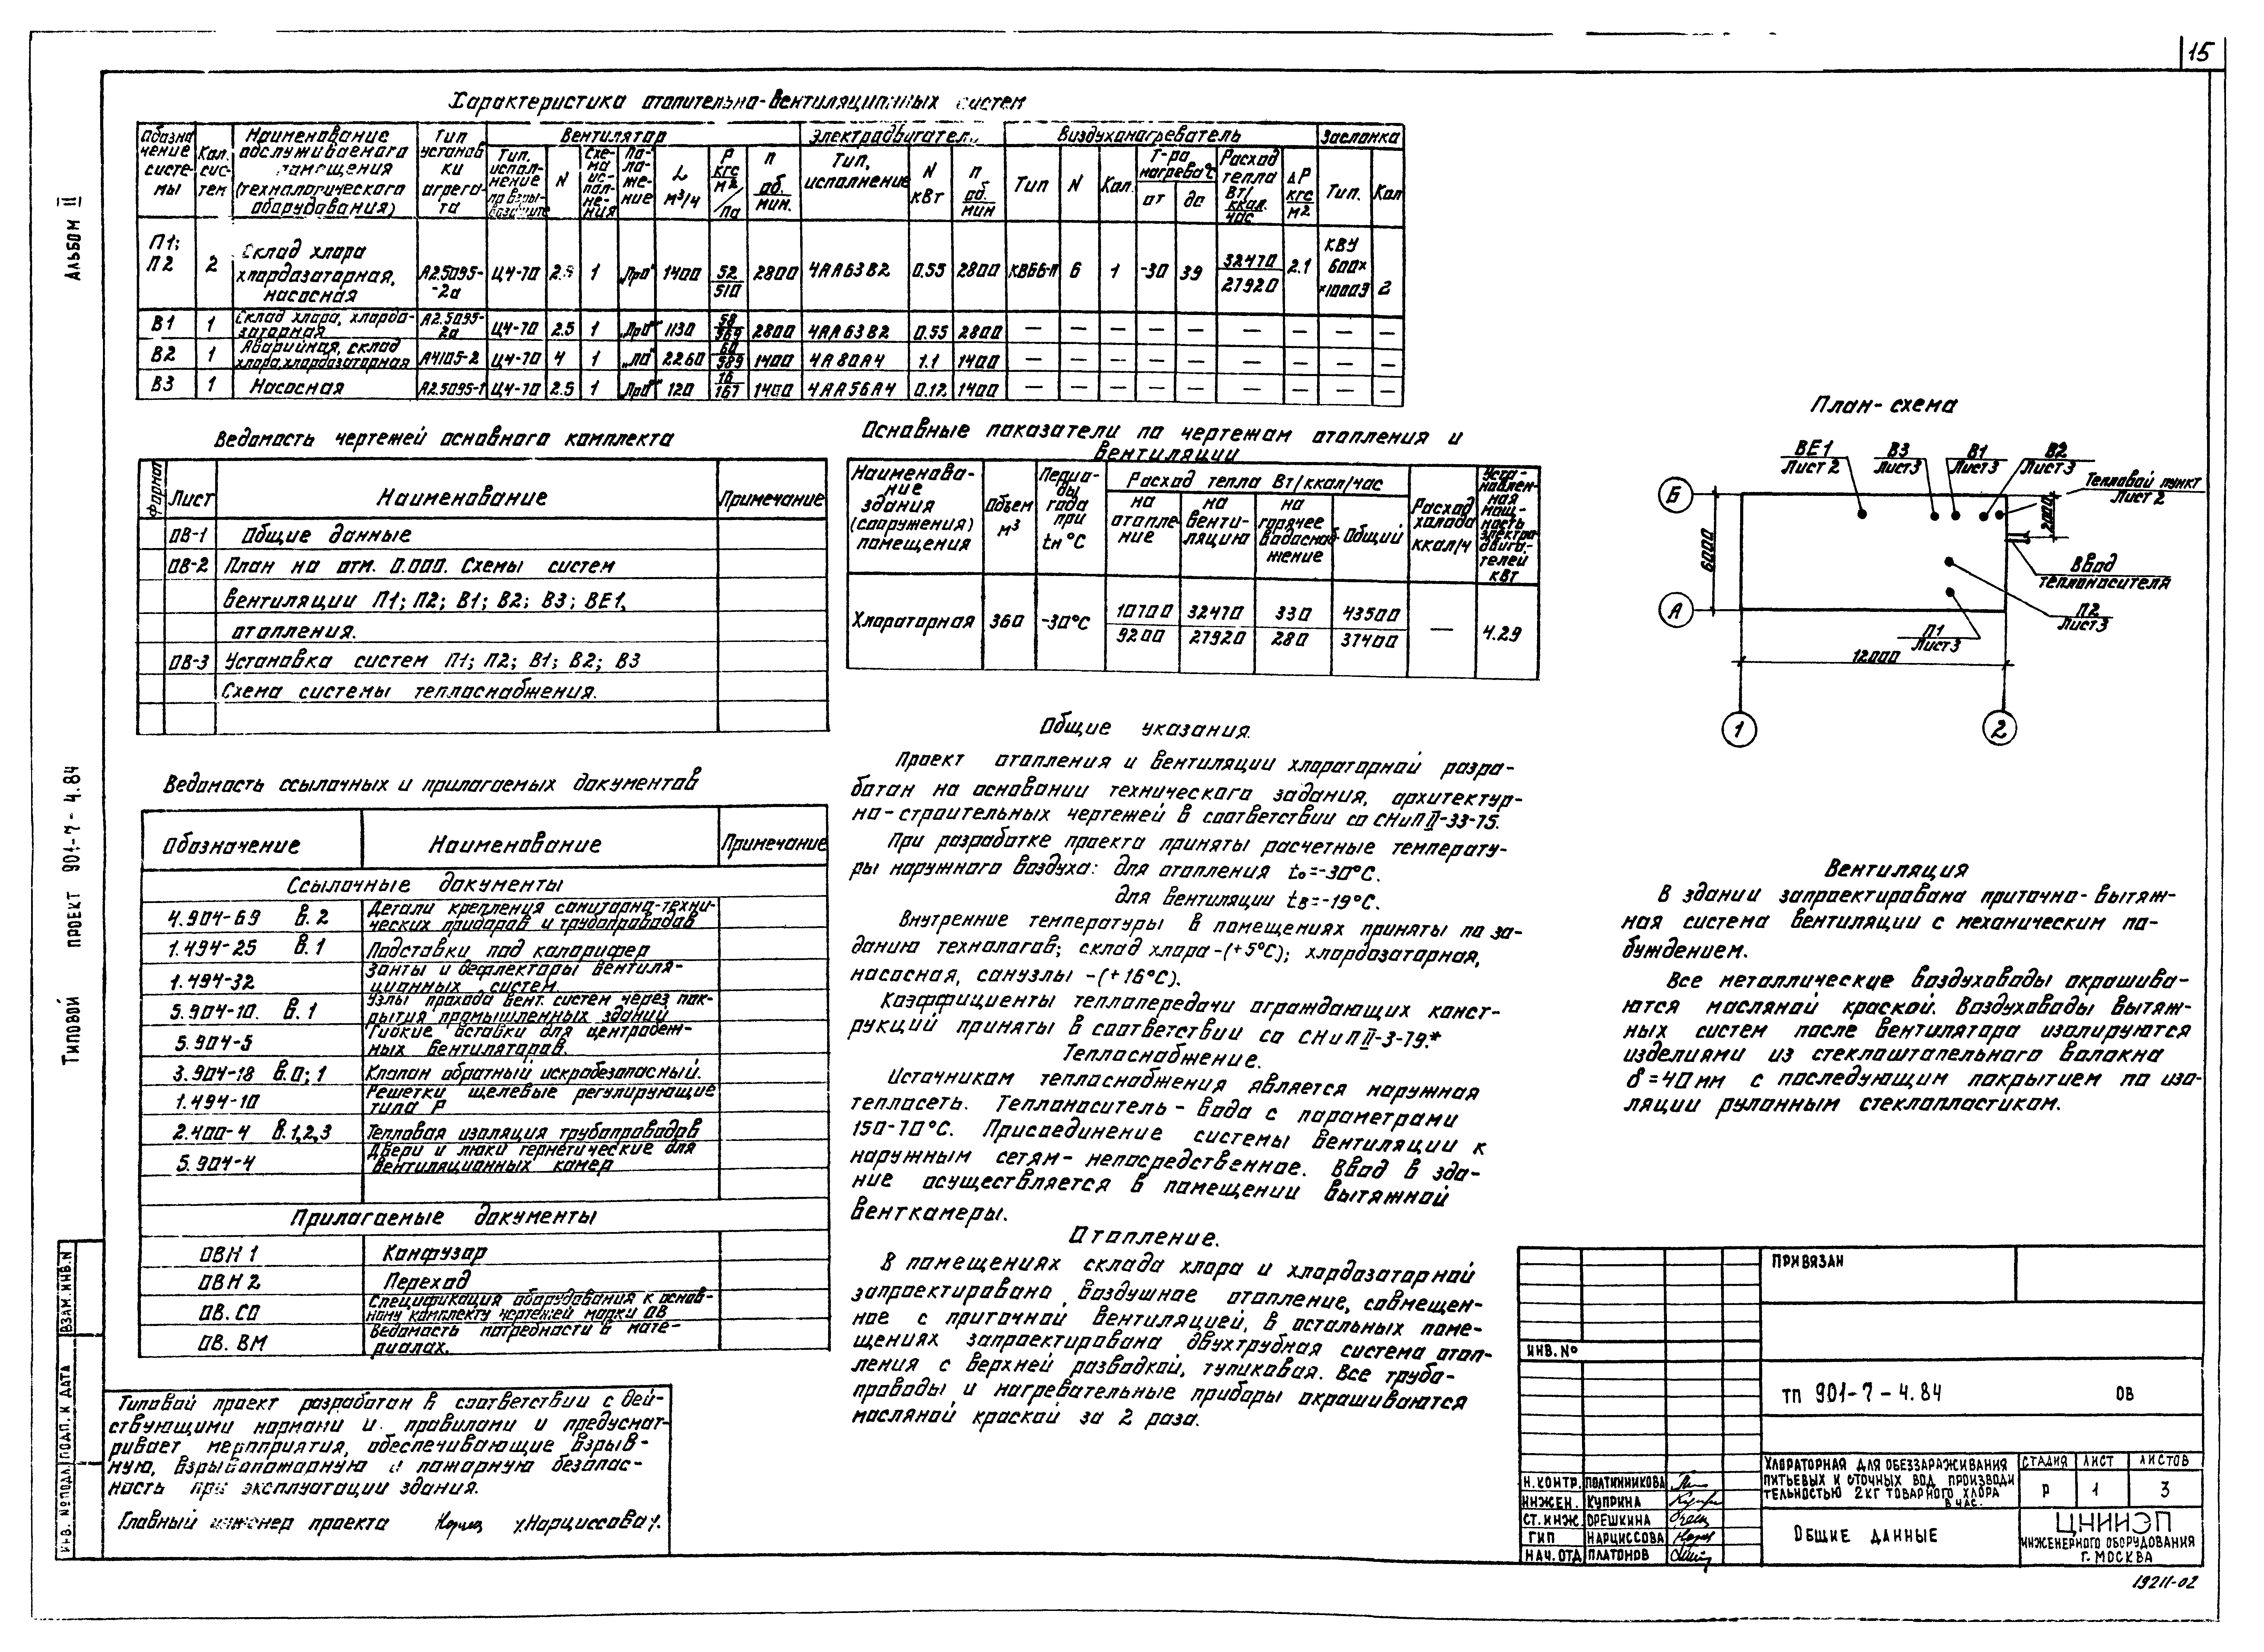 15
Альбом II
Типовой проект 901-7-4.84
Характеристика отопительно-вентиляционных систем
Обозначение системы | Кол. систем | Наименование обслуживаемого помещения (технологического оборудования) | Тип установки агрегата | Вентилятор | Электродвигатель | Воздухонагреватель | Заслонка
Тип, исполнение по взрывозащите | N | Схема исполнения | Положение | L м³/ч | P кгс/м2 / Па | n об/мин. | Тип, исполнение | N кВт | n об/мин | Тип | N | Кол. | Т-ра нагрева °С от | до | Расход тепла Вт/ккал/час | ΔP кгс/м2 | Тип. | Кол
П1; П2 | 2 | Склад хлора хлордозаторная, насосная | А2.5095-2а | Ц4-70 | 2.5 | 1 | „Пр0" | 1400 | 52/510 | 2800 | 4АА63В2 | 0.55 | 2800 | КВББ-П | 6 | 1 | -30 | 39 | 32470/27920 | 2.1 | КВУ 600× ×1000Э | 2
В1 | 1 | Склад хлора, хлордозаторная | А2.5095-2а | Ц4-70 | 2.5 | 1 | „Пр0" | 1130 | 58/569 | 2800 | 4АА63В2 | 0.55 | 2800 | — | — | — | — | — | — | — | — | —
В2 | 1 | Аварийная, склад хлора, хлордозаторная | А4105-2 | Ц4-70 | 4 | 1 | „Л0" | 2260 | 60/589 | 1400 | 4А80А4 | 1.1 | 1400 | — | — | — | — | — | — | — | — | —
В3 | 1 | Насосная | А2.5095-1 | Ц4-70 | 2.5 | 1 | „Пр0" | 120 | 16/167 | 1400 | 4АА56А4 | 0.12 | 1400 | — | — | — | — | — | — | — | — | —
Ведомость чертежей основного комплекта
Формат | Лист | Наименование | Примечание
ОВ-1 | Общие данные
ОВ-2 | План на отм. 0.000. Схемы систем
вентиляции П1; П2; В1; В2; В3; ВЕ1,
отопления.
ОВ-3 | Установка систем П1; П2; В1; В2; В3
Схема системы теплоснабжения.
Основные показатели по чертежам отопления и
вентиляции
Наименование здания (сооружения) помещения | Объем м³ | Периоды года при tн °С | Расход тепла Вт/ккал/час | Расход холода ккал/ч | Установленная мощность электродвигателей кВт
на отопление | на вентиляцию | на горячее водоснабжение | Общий
Хлораторная | 360 | -30°С | 10700/9200 | 32470/27920 | 330/280 | 43500/37400 | — | 4.29
План-схема
ВЕ1 Лист 2
В3 Лист 3
В1 Лист 3
В2 Лист 3
Тепловой пункт Лист 2
Б
6000
2000
Ввод теплоносителя
А
П2 Лист 3
П1 Лист 3
12000
1
2
Ведомость ссылочных и прилагаемых документов
Обозначение | Наименование | Примечание
Ссылочные документы
4.904-69 в.2 | Детали крепления санитарно-технических приборов и трубопроводов
1.494-25 в.1 | Подставки под калорифер
1.494-32 | Зонты и дефлекторы вентиляционных систем
5.904-10. в.1 | Узлы прохода вент. систем через покрытия промышленных зданий
5.904-5 | Гибкие вставки для центробежных вентиляторов.
3.904-18 в.0; 1 | Клапан обратный искробезопасный.
1.494-10 | Решетки щелевые регулирующие типа Р
2.400-4 в.1,2,3 | Тепловая изоляция трубопроводов
5.904-4 | Двери и люки герметические для вентиляционных камер
Прилагаемые документы
ОВН 1 | Конфузор
ОВН 2 | Переход
ОВ. СО | Спецификация оборудования к основному комплекту чертежей марки ОВ
ОВ. ВМ | Ведомость потребности в материалах.
Общие указания.
Проект отопления и вентиляции хлораторной разра-
ботан на основании технического задания, архитектур-
но-строительных чертежей в соответствии со СНиП II-33-75.
При разработке проекта приняты расчетные температу-
ры наружного воздуха: для отопления tо=-30°С.
для вентиляции tв=-19°С.
Внутренние температуры в помещениях приняты по за-
данию технологов; склад хлора-(+5°С); хлордозаторная,
насосная, санузлы -(+16°С).
Коэффициенты теплопередачи ограждающих конст-
рукций приняты в соответствии со СНиП II-3-79.*
Теплоснабжение.
Источником теплоснабжения является наружная
теплосеть. Теплоноситель - вода с параметрами
150-70°С. Присоединение системы вентиляции к
наружным сетям - непосредственное. Ввод в зда-
ние осуществляется в помещении вытяжной
венткамеры.
Отопление.
В помещениях склада хлора и хлордозаторной
запроектировано воздушное отопление, совмещен-
ное с приточной вентиляцией, в остальных поме-
щениях запроектирована двухтрубная система отоп-
ления с верхней разводкой, тупиковая. Все трубо-
проводы и нагревательные приборы окрашиваются
масляной краской за 2 раза.
Вентиляция
В здании запроектирована приточно-вытяж-
ная система вентиляции с механическим по-
буждением.
Все металлические воздуховоды окрашива-
ются масляной краской. Воздуховоды вытяж-
ных систем после вентилятора изолируются
изделиями из стеклоштапельного волокна
δ=40мм с последующим покрытием по изо-
ляции рулонным стеклопластиком.
Типовой проект разработан в соответствии с дей-
ствующими нормами и правилами и предусмат-
ривает мероприятия, обеспечивающие взрыв-
ную, взрывопожарную и пожарную безопас-
ность при эксплуатации здания.
Главный инженер проекта /Нарциссова/.
Взам. инв. N
Подп. и дата
Инв. № подл.
Привязан
Инв. №
ТП 901-7-4.84 ОВ
Н. контр. Полтинникова
Инжен. Куприна
Ст. инж. Орешкина
ГИП Нарциссова
Нач. отд Платонов
Хлораторная для обеззараживания
питьевых и сточных вод производи
тельностью 2кг товарного хлора
в час.
Стадия | Лист | Листов
Р | 1 | 3
Общие данные
ЦНИИЭП
инженерного оборудования
г. Москва
19211-02